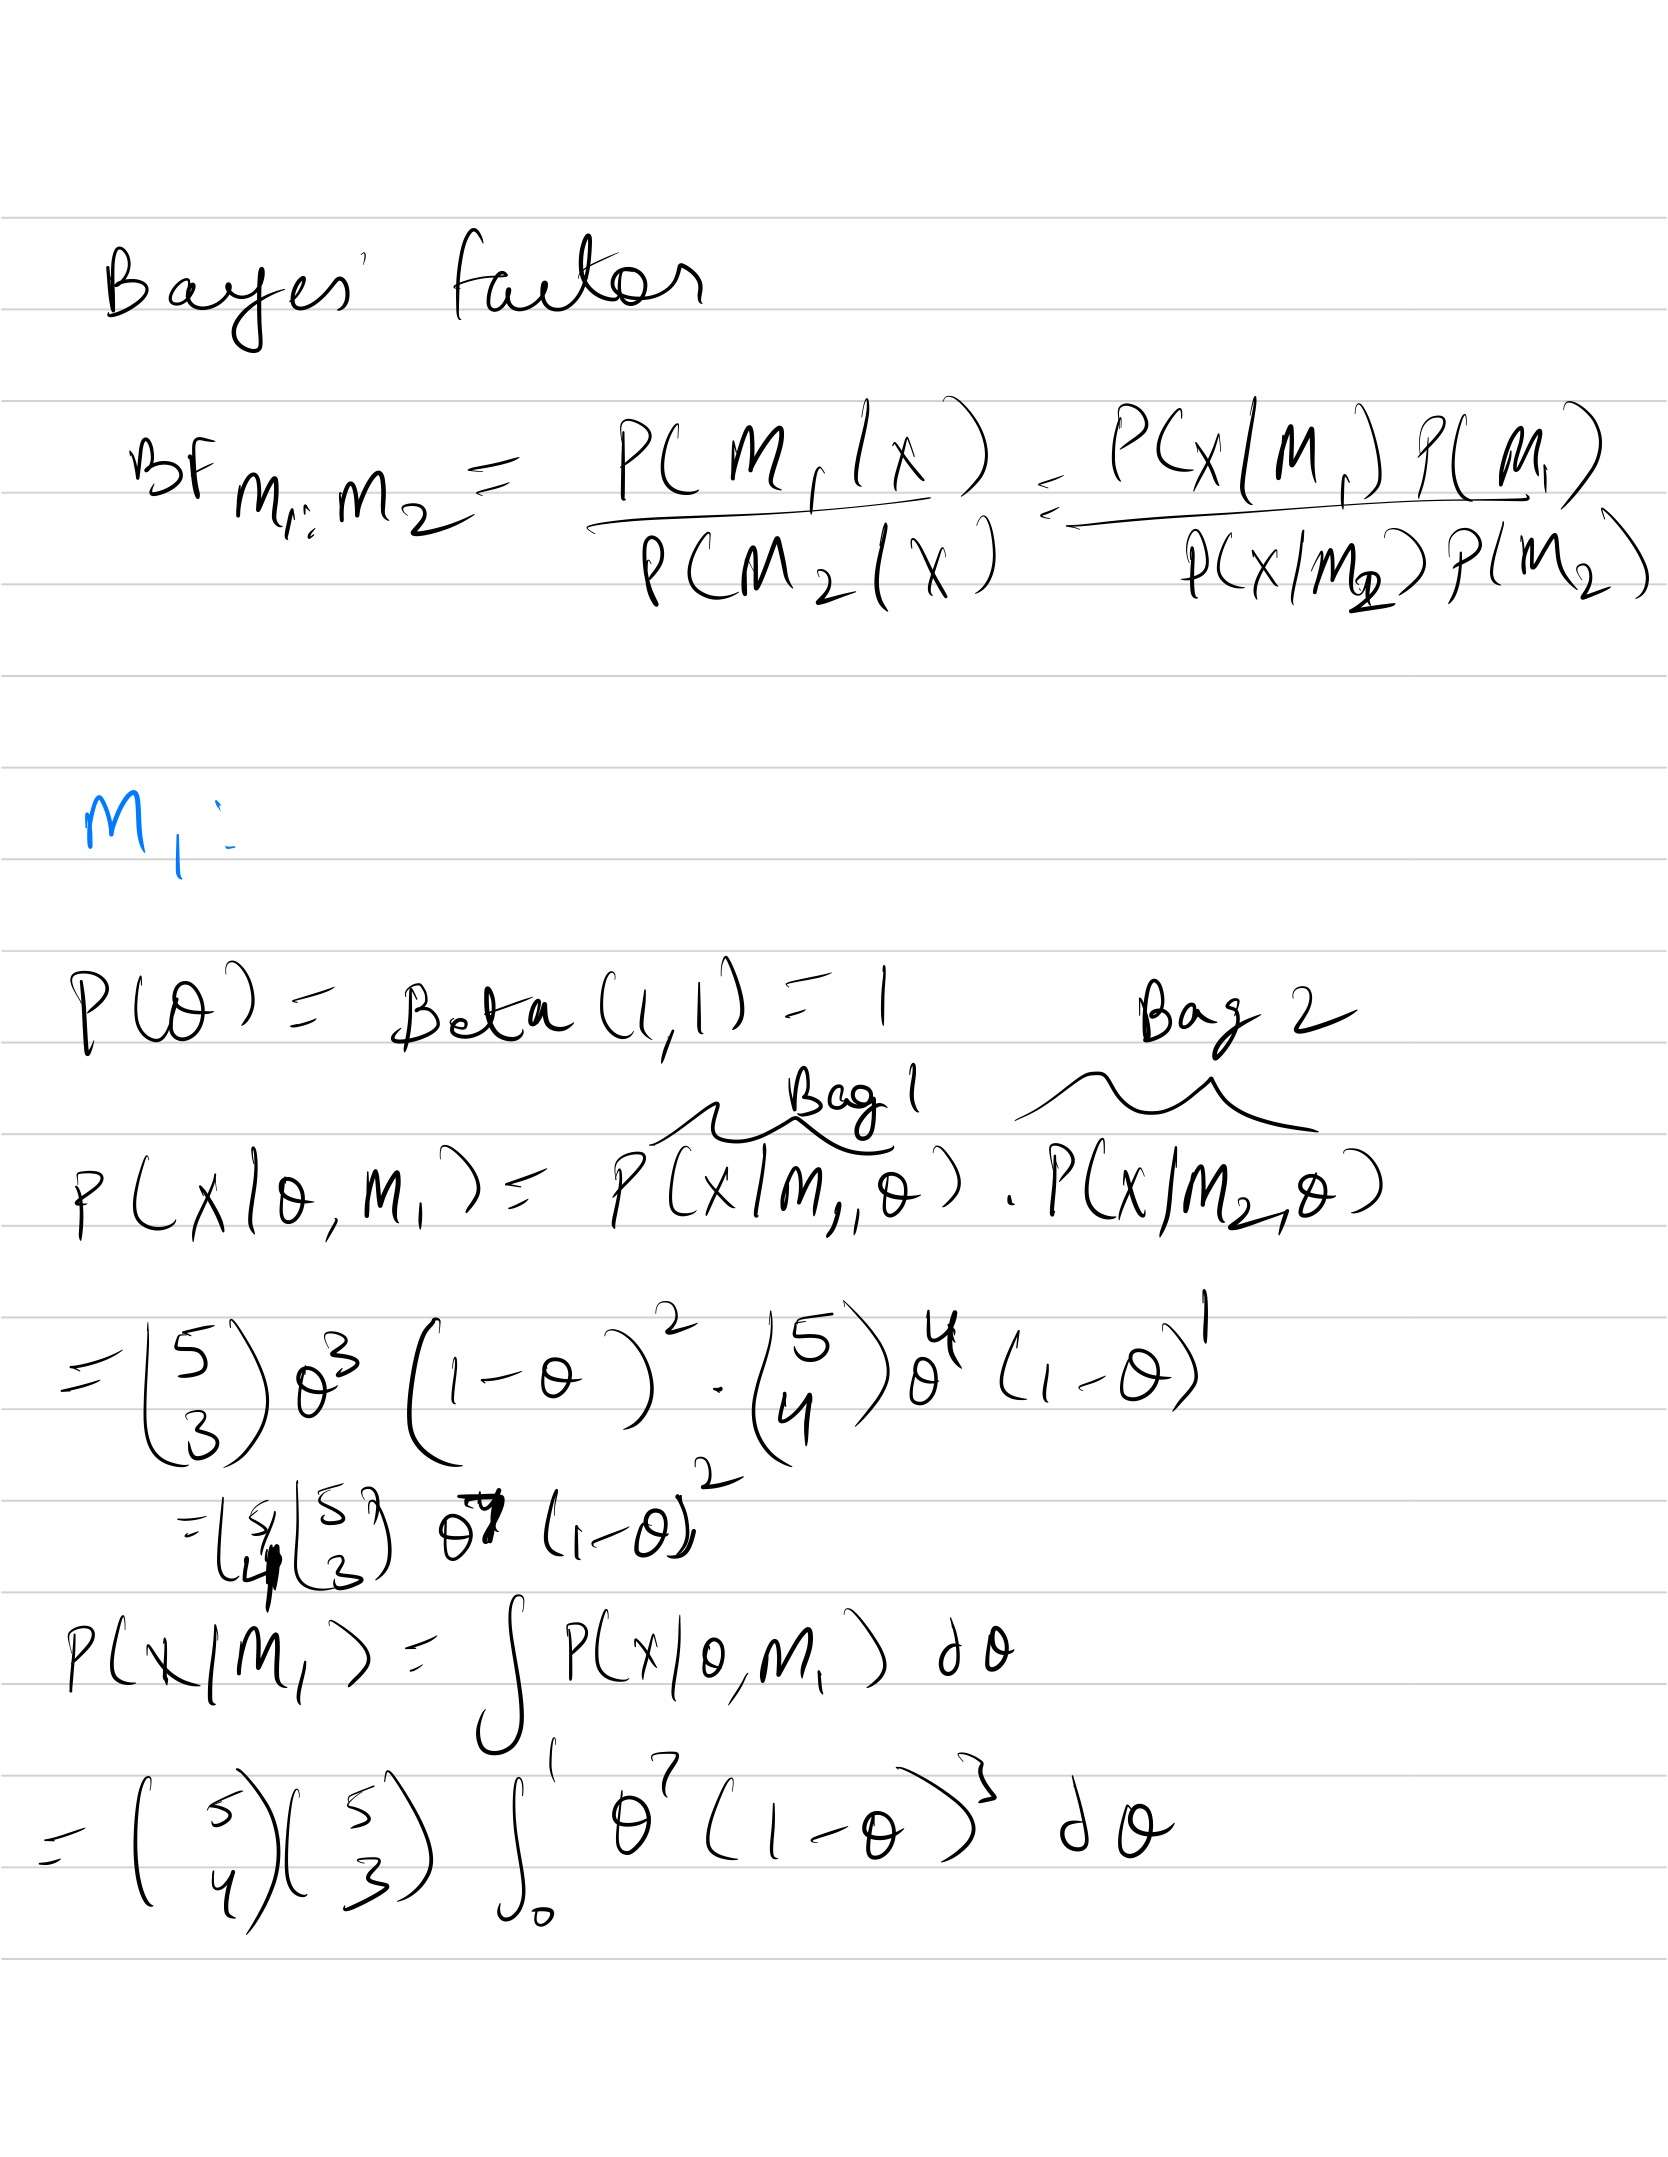 Bayes' Factor
BF_{M_1:M_2} = P(M_1|X) / P(M_2|X) = P(X|M_1) P(M_1) / P(X|M_2) P(M_2)
M_1:
P(θ) = Beta(1,1) = 1
Bag 2
Bag 1
P(X|θ, M_1) = P(X|M_1, θ) . P(X|M_2, θ)
= (5 3) θ^3 (1-θ)^2 . (5 4) θ^4 (1-θ)^1
= (5 4)(5 3) θ^7 (1-θ)^2
P(X|M_1) = ∫ P(X|θ, M_1) dθ
= (5 4)(5 3) ∫_0^1 θ^7 (1-θ)^3 dθ